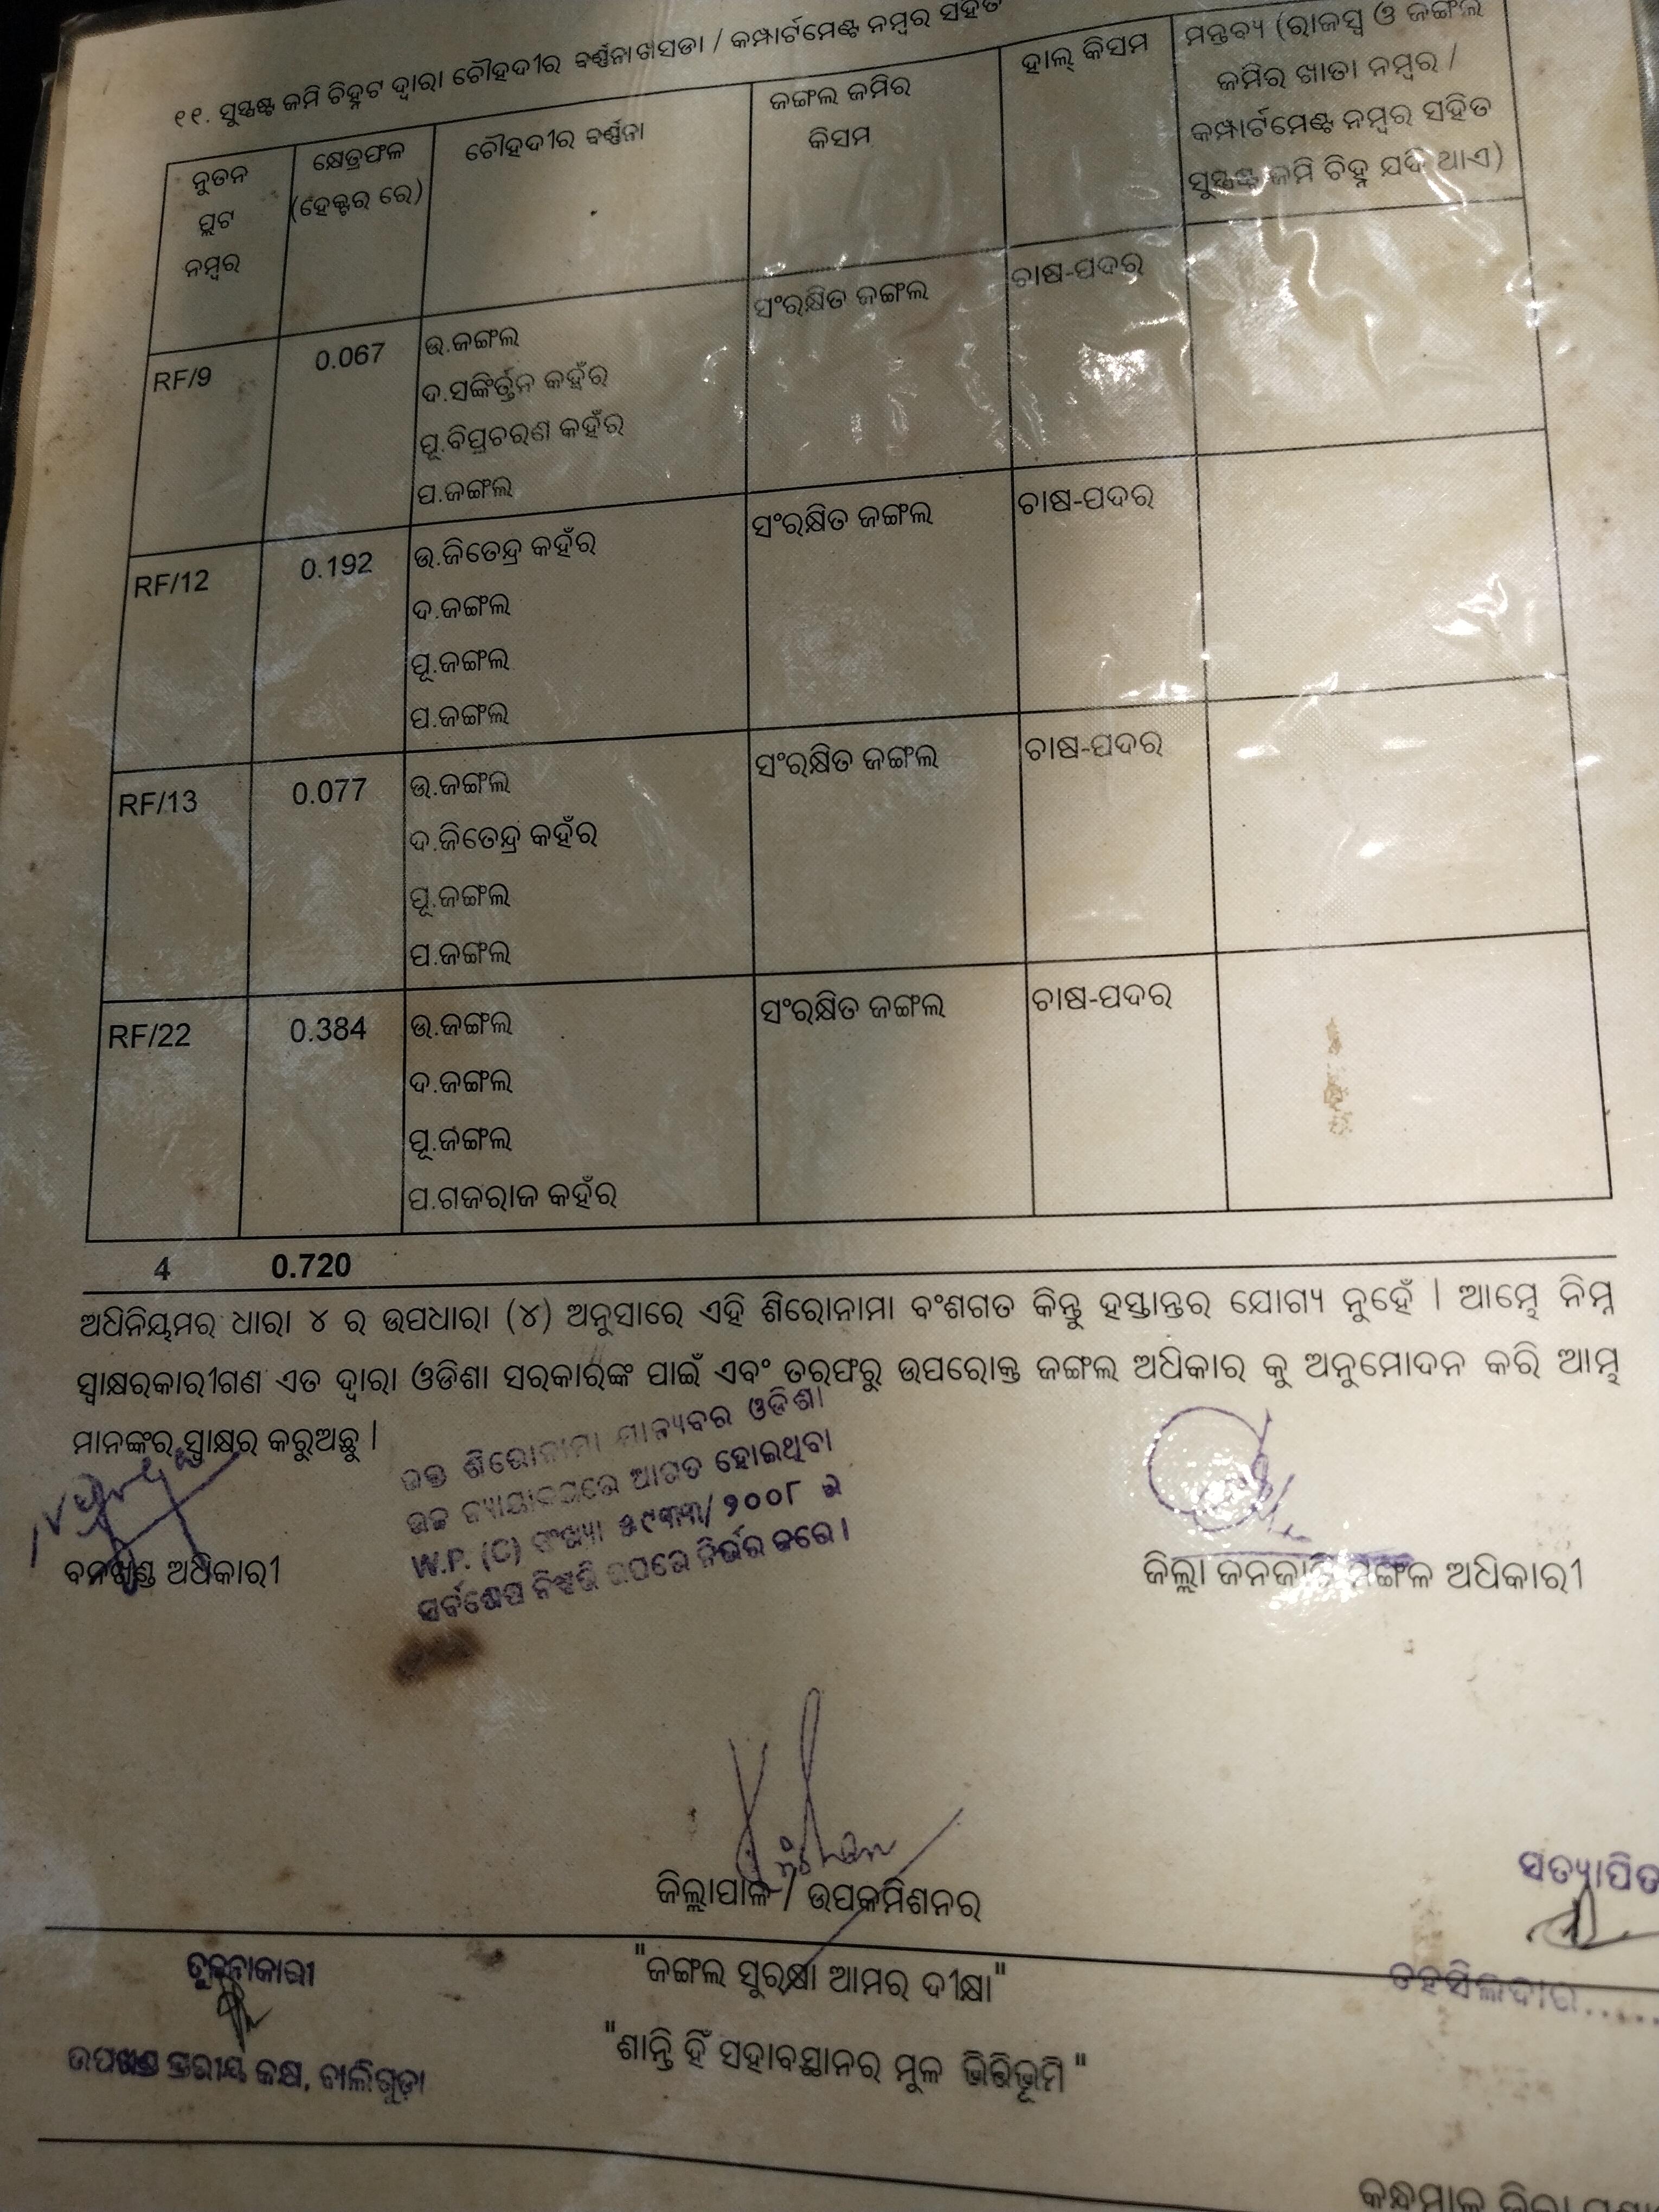 ୧୧. ସୁସ୍ପଷ୍ଟ ଜମି ଚିହ୍ନଟ ଦ୍ୱାରା ଚୌହଦୀର ବର୍ଣ୍ଣନା ଖସଡା / କମ୍ପାର୍ଟମେଣ୍ଟ ନମ୍ବର ସହିତ
ନୁତନ ପ୍ଲଟ ନମ୍ବର
କ୍ଷେତ୍ରଫଳ (ହେକ୍ଟର ରେ)
ଚୌହଦୀର ବର୍ଣ୍ଣନା
ଜଙ୍ଗଲ ଜମିର କିସମ
ହାଲ୍ କିସମ
ମନ୍ତବ୍ୟ (ରାଜସ୍ୱ ଓ ଜଙ୍ଗଲ
ଜମିର ଖାତା ନମ୍ବର /
କମ୍ପାର୍ଟମେଣ୍ଟ ନମ୍ବର ସହିତ
ସୁସ୍ପଷ୍ଟ ଜମି ଚିହ୍ନ ଯଦି ଥାଏ)
RF/9 0.067 ଉ.ଜଙ୍ଗଲ ସଂରକ୍ଷିତ ଜଙ୍ଗଲ ଚାଷ-ପଦର
ଦ.ସଙ୍କିର୍ତ୍ତନ କହଁର
ପୂ.ବିପ୍ରଚରଣ କହଁର
ପ.ଜଙ୍ଗଲ
RF/12 0.192 ଉ.ଜିତେନ୍ଦ୍ର କହଁର ସଂରକ୍ଷିତ ଜଙ୍ଗଲ ଚାଷ-ପଦର
ଦ.ଜଙ୍ଗଲ
ପୂ.ଜଙ୍ଗଲ
ପ.ଜଙ୍ଗଲ
RF/13 0.077 ଉ.ଜଙ୍ଗଲ ସଂରକ୍ଷିତ ଜଙ୍ଗଲ ଚାଷ-ପଦର
ଦ.ଜିତେନ୍ଦ୍ର କହଁର
ପୂ.ଜଙ୍ଗଲ
ପ.ଜଙ୍ଗଲ
RF/22 0.384 ଉ.ଜଙ୍ଗଲ ସଂରକ୍ଷିତ ଜଙ୍ଗଲ ଚାଷ-ପଦର
ଦ.ଜଙ୍ଗଲ
ପୂ.ଜଙ୍ଗଲ
ପ.ଗଜରାଜ କହଁର
4 0.720
ଅଧିନିୟମର ଧାରା ୪ ର ଉପଧାରା (୪) ଅନୁସାରେ ଏହି ଶିରୋନାମା ବଂଶଗତ କିନ୍ତୁ ହସ୍ତାନ୍ତର ଯୋଗ୍ୟ ନୁହେଁ । ଆମ୍ଭେ ନିମ୍ନ
ସ୍ୱାକ୍ଷରକାରୀଗଣ ଏତ ଦ୍ୱାରା ଓଡିଶା ସରକାରଙ୍କ ପାଇଁ ଏବଂ ତରଫରୁ ଉପରୋକ୍ତ ଜଙ୍ଗଲ ଅଧିକାର କୁ ଅନୁମୋଦନ କରି ଆମ୍ଭ
ମାନଙ୍କର ସ୍ୱାକ୍ଷର କରୁଅଛୁ ।
ଉକ୍ତ ଶିରୋନାମା ମାନ୍ୟବର ଓଡିଶା
ଉଚ୍ଚ ନ୍ୟାୟାଳୟରେ ଆଗତ ହୋଇଥିବା
W.P. (C) ସଂଖ୍ୟା /୨୦୦୮ ର
ସର୍ବଶେଷ ନିଷ୍ପତ୍ତି ଉପରେ ନିର୍ଭର କରେ ।
ବନଖଣ୍ଡ ଅଧିକାରୀ
ଜିଲ୍ଲା ଜନଜାତି ମଙ୍ଗଳ ଅଧିକାରୀ
ଜିଲ୍ଲାପାଳ / ଉପକମିଶନର
ସତ୍ୟାପିତ
ତହସିଲଦାର......
ତୁଳନାକାରୀ
ଉପଖଣ୍ଡ ସ୍ତରୀୟ କକ୍ଷ, ବାଲିଗୁଡ଼ା
"ଜଙ୍ଗଲ ସୁରକ୍ଷା ଆମର ଦୀକ୍ଷା"
"ଶାନ୍ତି ହିଁ ସହାବସ୍ଥାନର ମୁଳ ଭିତ୍ତିଭୂମି"
କନ୍ଧମାଳ ଜିଲ୍ଲା